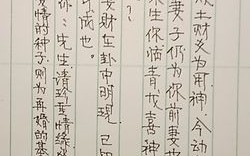 土财爻为用神。今动
妻子何为你前妻也
生你临青龙喜神
?
妻财在卦中明现。已
成也。
你:先生请珍重情缘
情的种子。则为再婚的基